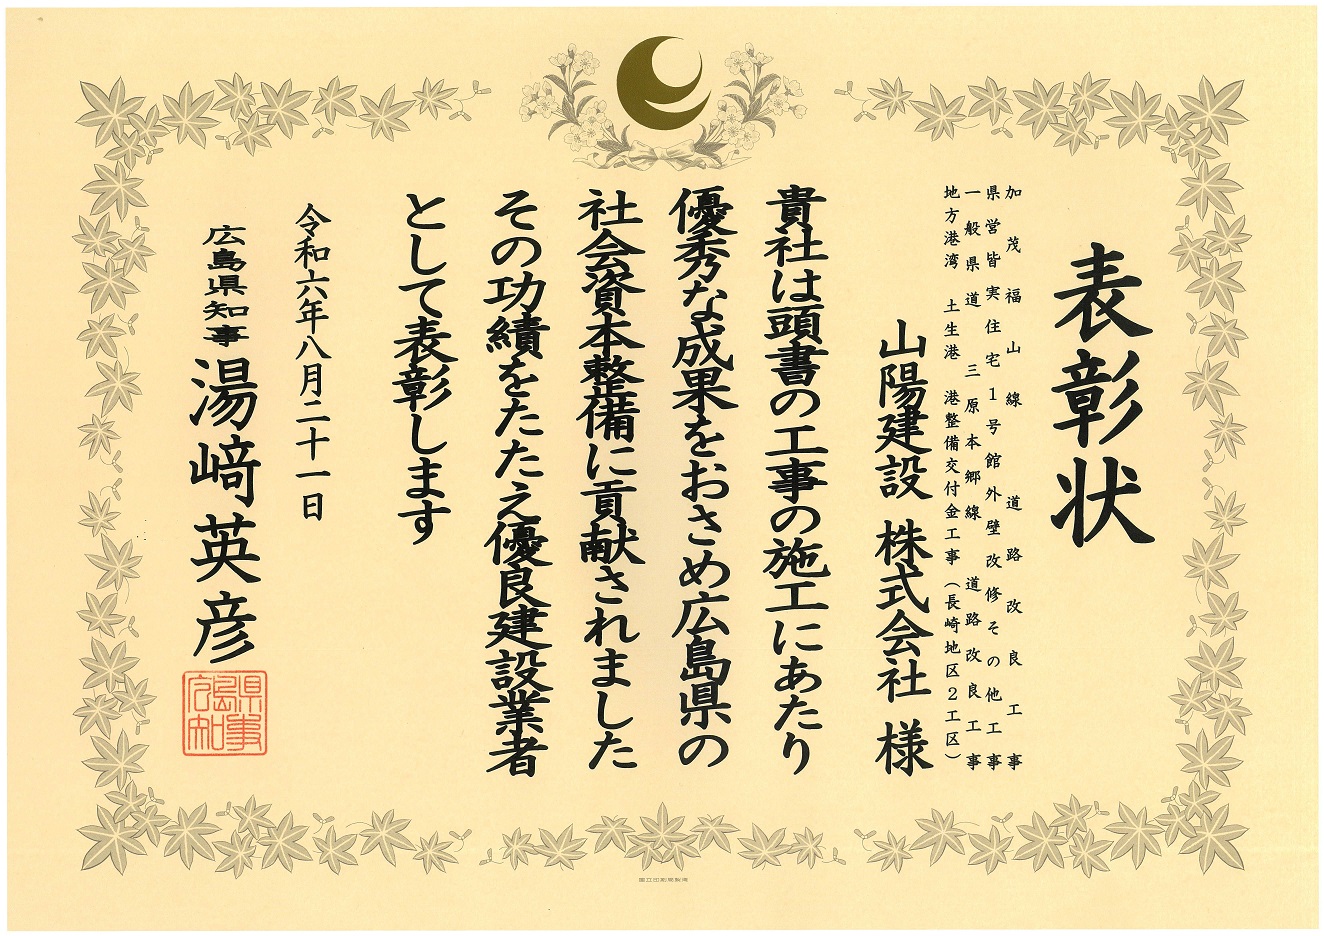 表彰状
加茂福山線 道路改良工事
県営皆実住宅1号館外壁改修その他工事
一般県道 三原本郷線 道路改良工事
地方港湾 土生港 港整備交付金工事(長崎地区2工区)
山陽建設 株式会社 様
貴社は頭書の工事の施工にあたり
優秀な成果をおさめ広島県の
社会資本整備に貢献されました
その功績をたたえ優良建設業者
として表彰します
令和六年八月二十一日
広島県知事 湯﨑英彦